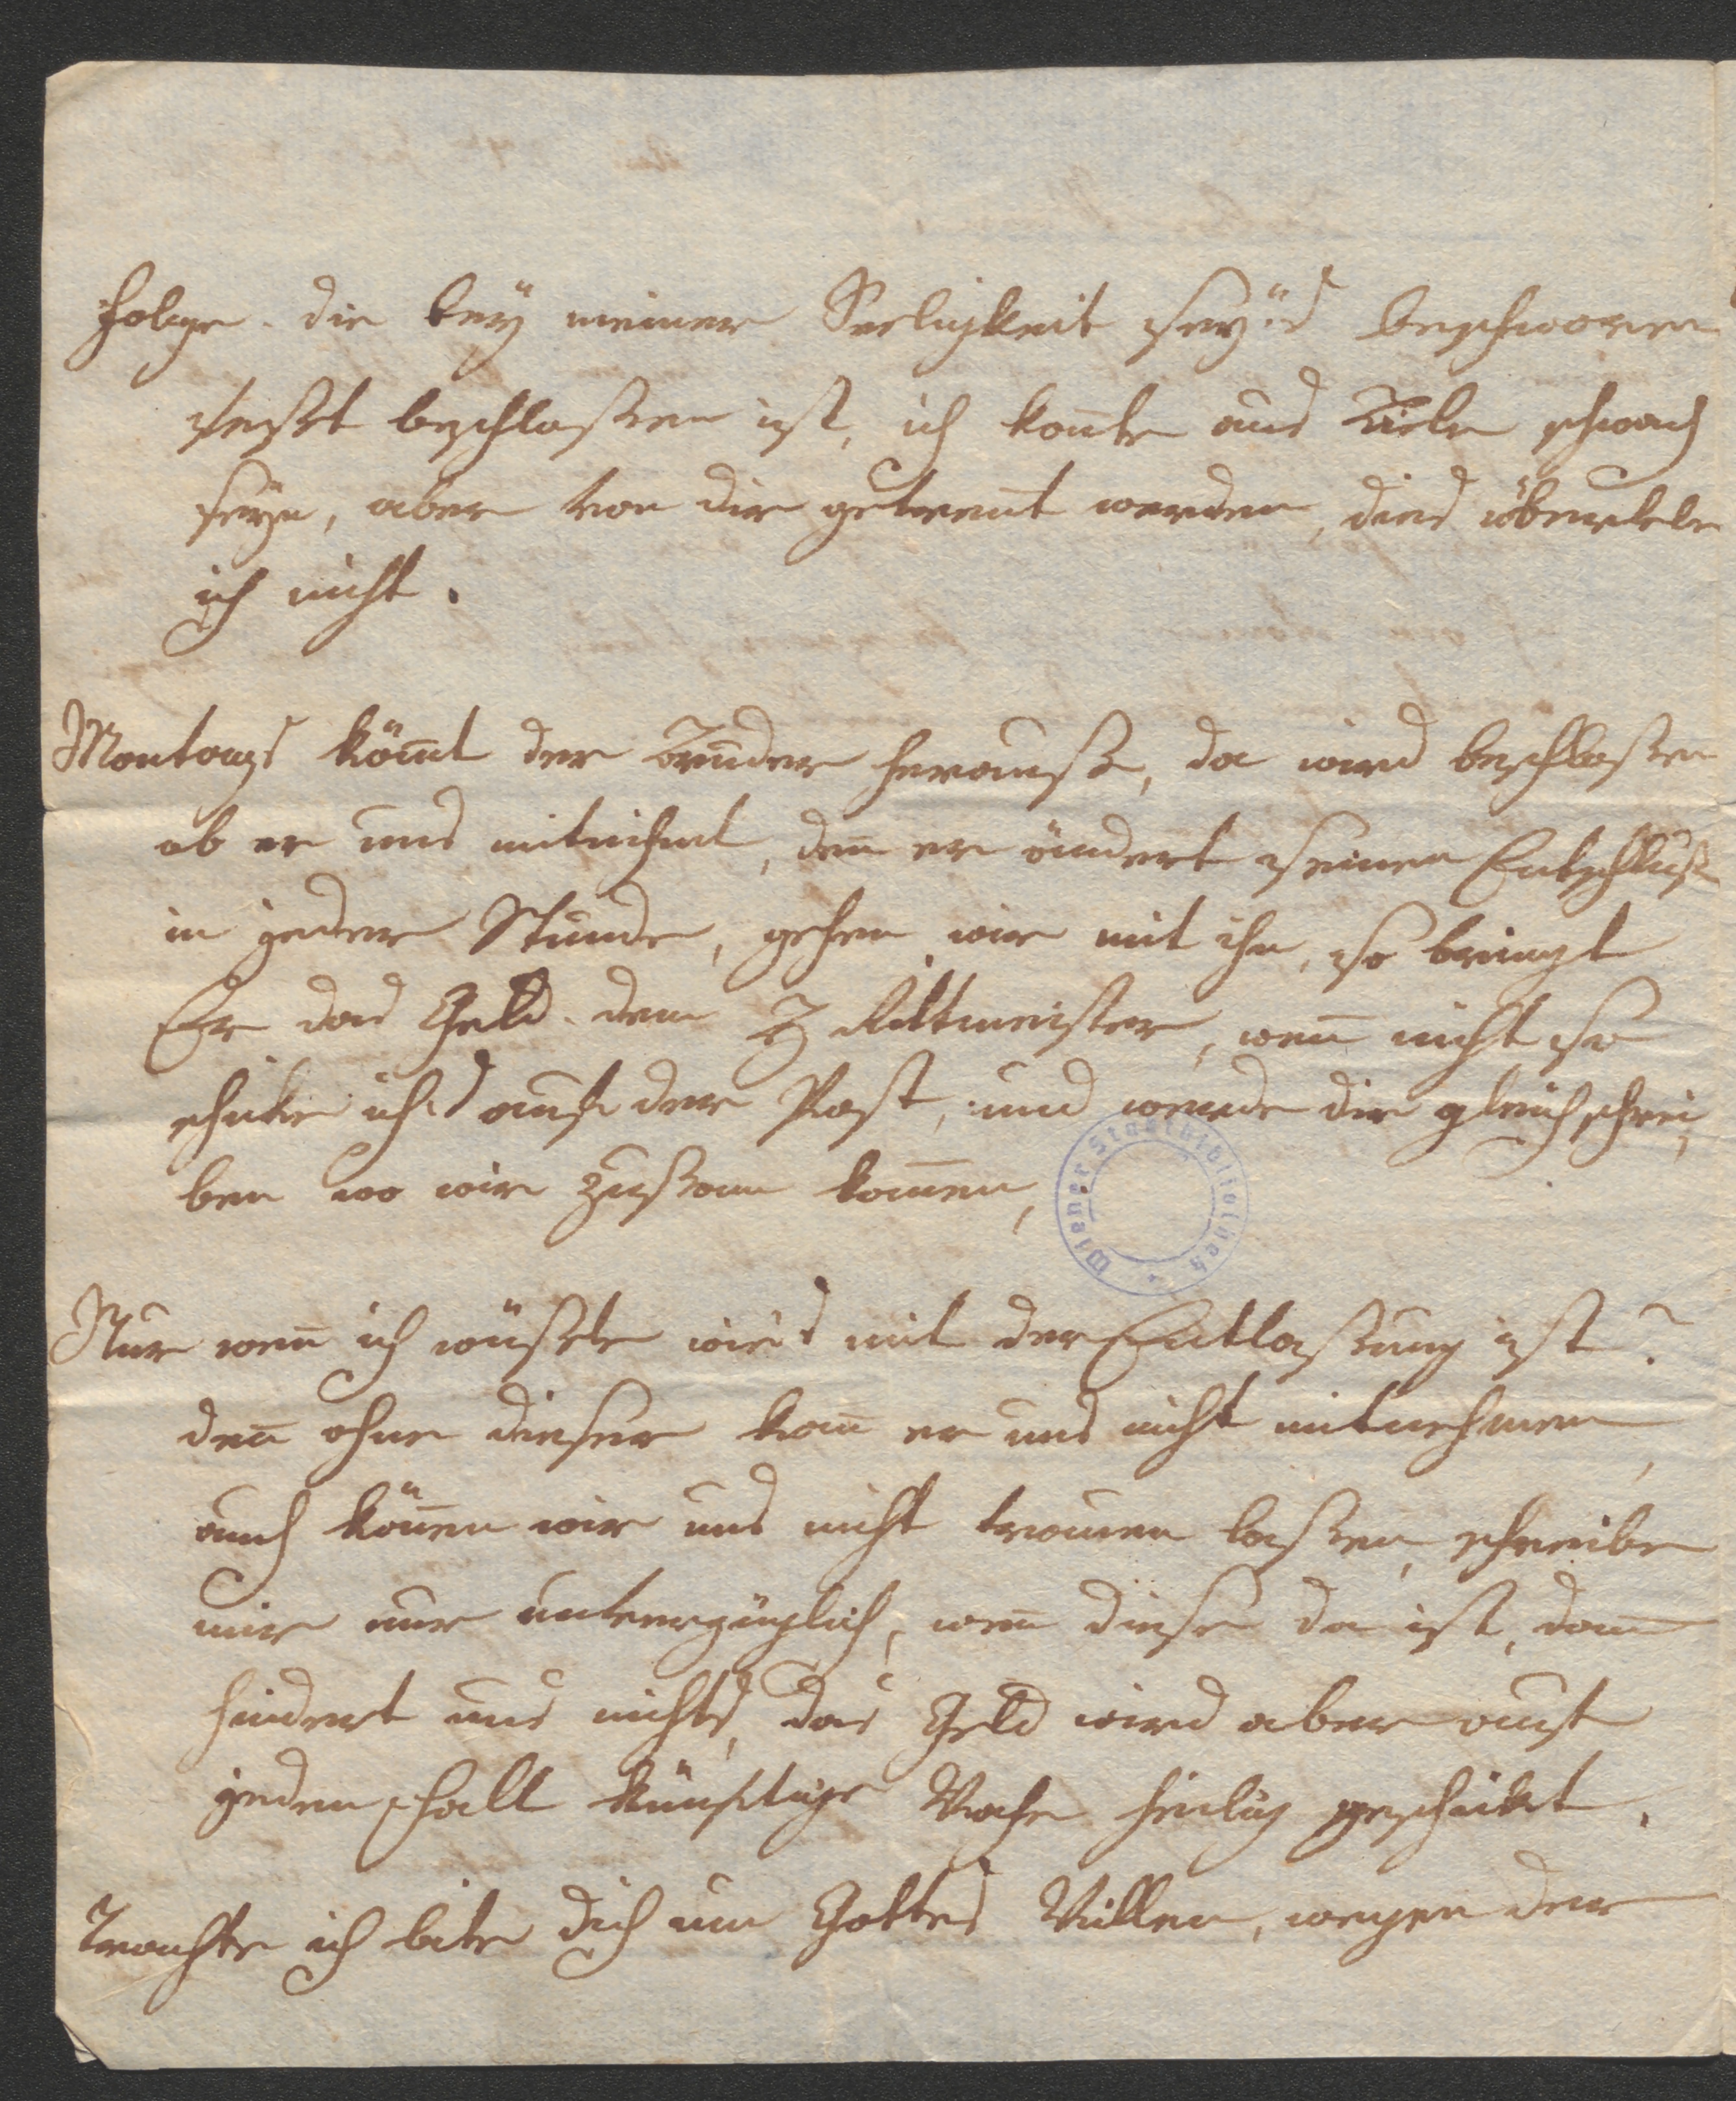 Folge. die bey meiner Seeligkeit sey's beschworen
fest beschloßen ist, ich kon̅te aus Liebe schwach
seyn, aber von dir getren̅t werden, dies überlebe
ich nicht.
Montags köm̅t der Bruder herauß, da wird beschloßen
ob er uns mitnihmt, den̅ er ändert seinen Entschluß
in jeder Stunde, gehen wir mit ihn, so bringt
Er das Geld dem Rittmeister, wen̅ nicht so
schicke ichs auf der Post, und werde dir gleich schrei,
ben wo wir zusam̅ kom̅en,
Wiener Stadtbibliothek
Nur wen̅ ich wüßte wie's mit der Entlaßung ist?
den̅ ohne dieser kan̅ er uns nicht mitnehmen,
auch kön̅en wir uns nicht trauen laßen, schreibe
mir nur unverzüglich, wen̅ diese da ist, dan̅
hindert uns nichts, das Geld wird aber auf
jeden Fall künftige Woche heilig geschickt.
Trachte ich bite dich um Gottes Willen, wegen der